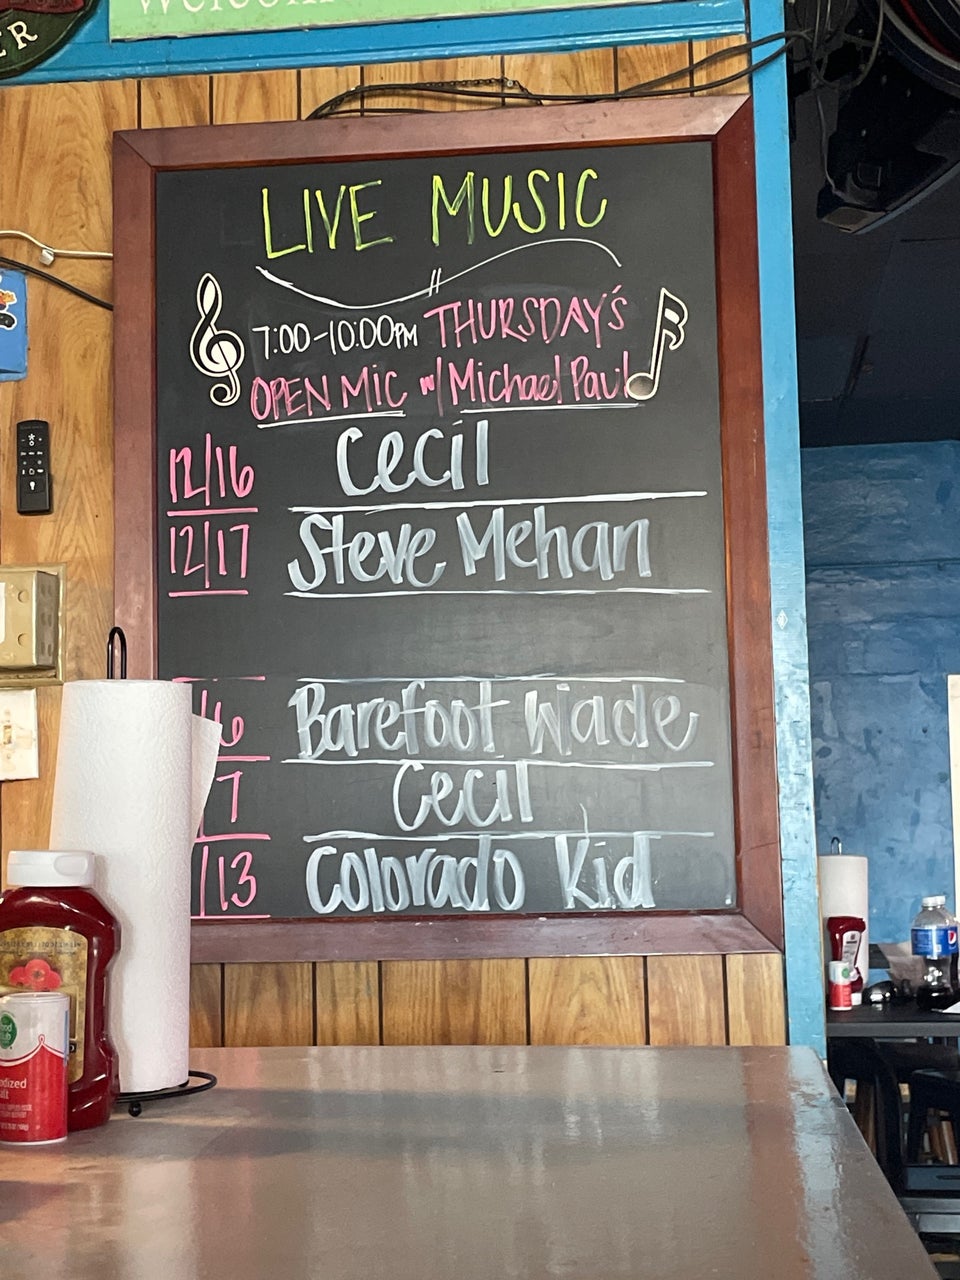 ER
LIVE MUSIC
7:00-10:00PM THURSDAY'S
OPEN MIC w/ Michael Paul
12/16 Cecil
12/17 Steve Mehan
/6 Barefoot Wade
7 Cecil
/13 Colorado Kid